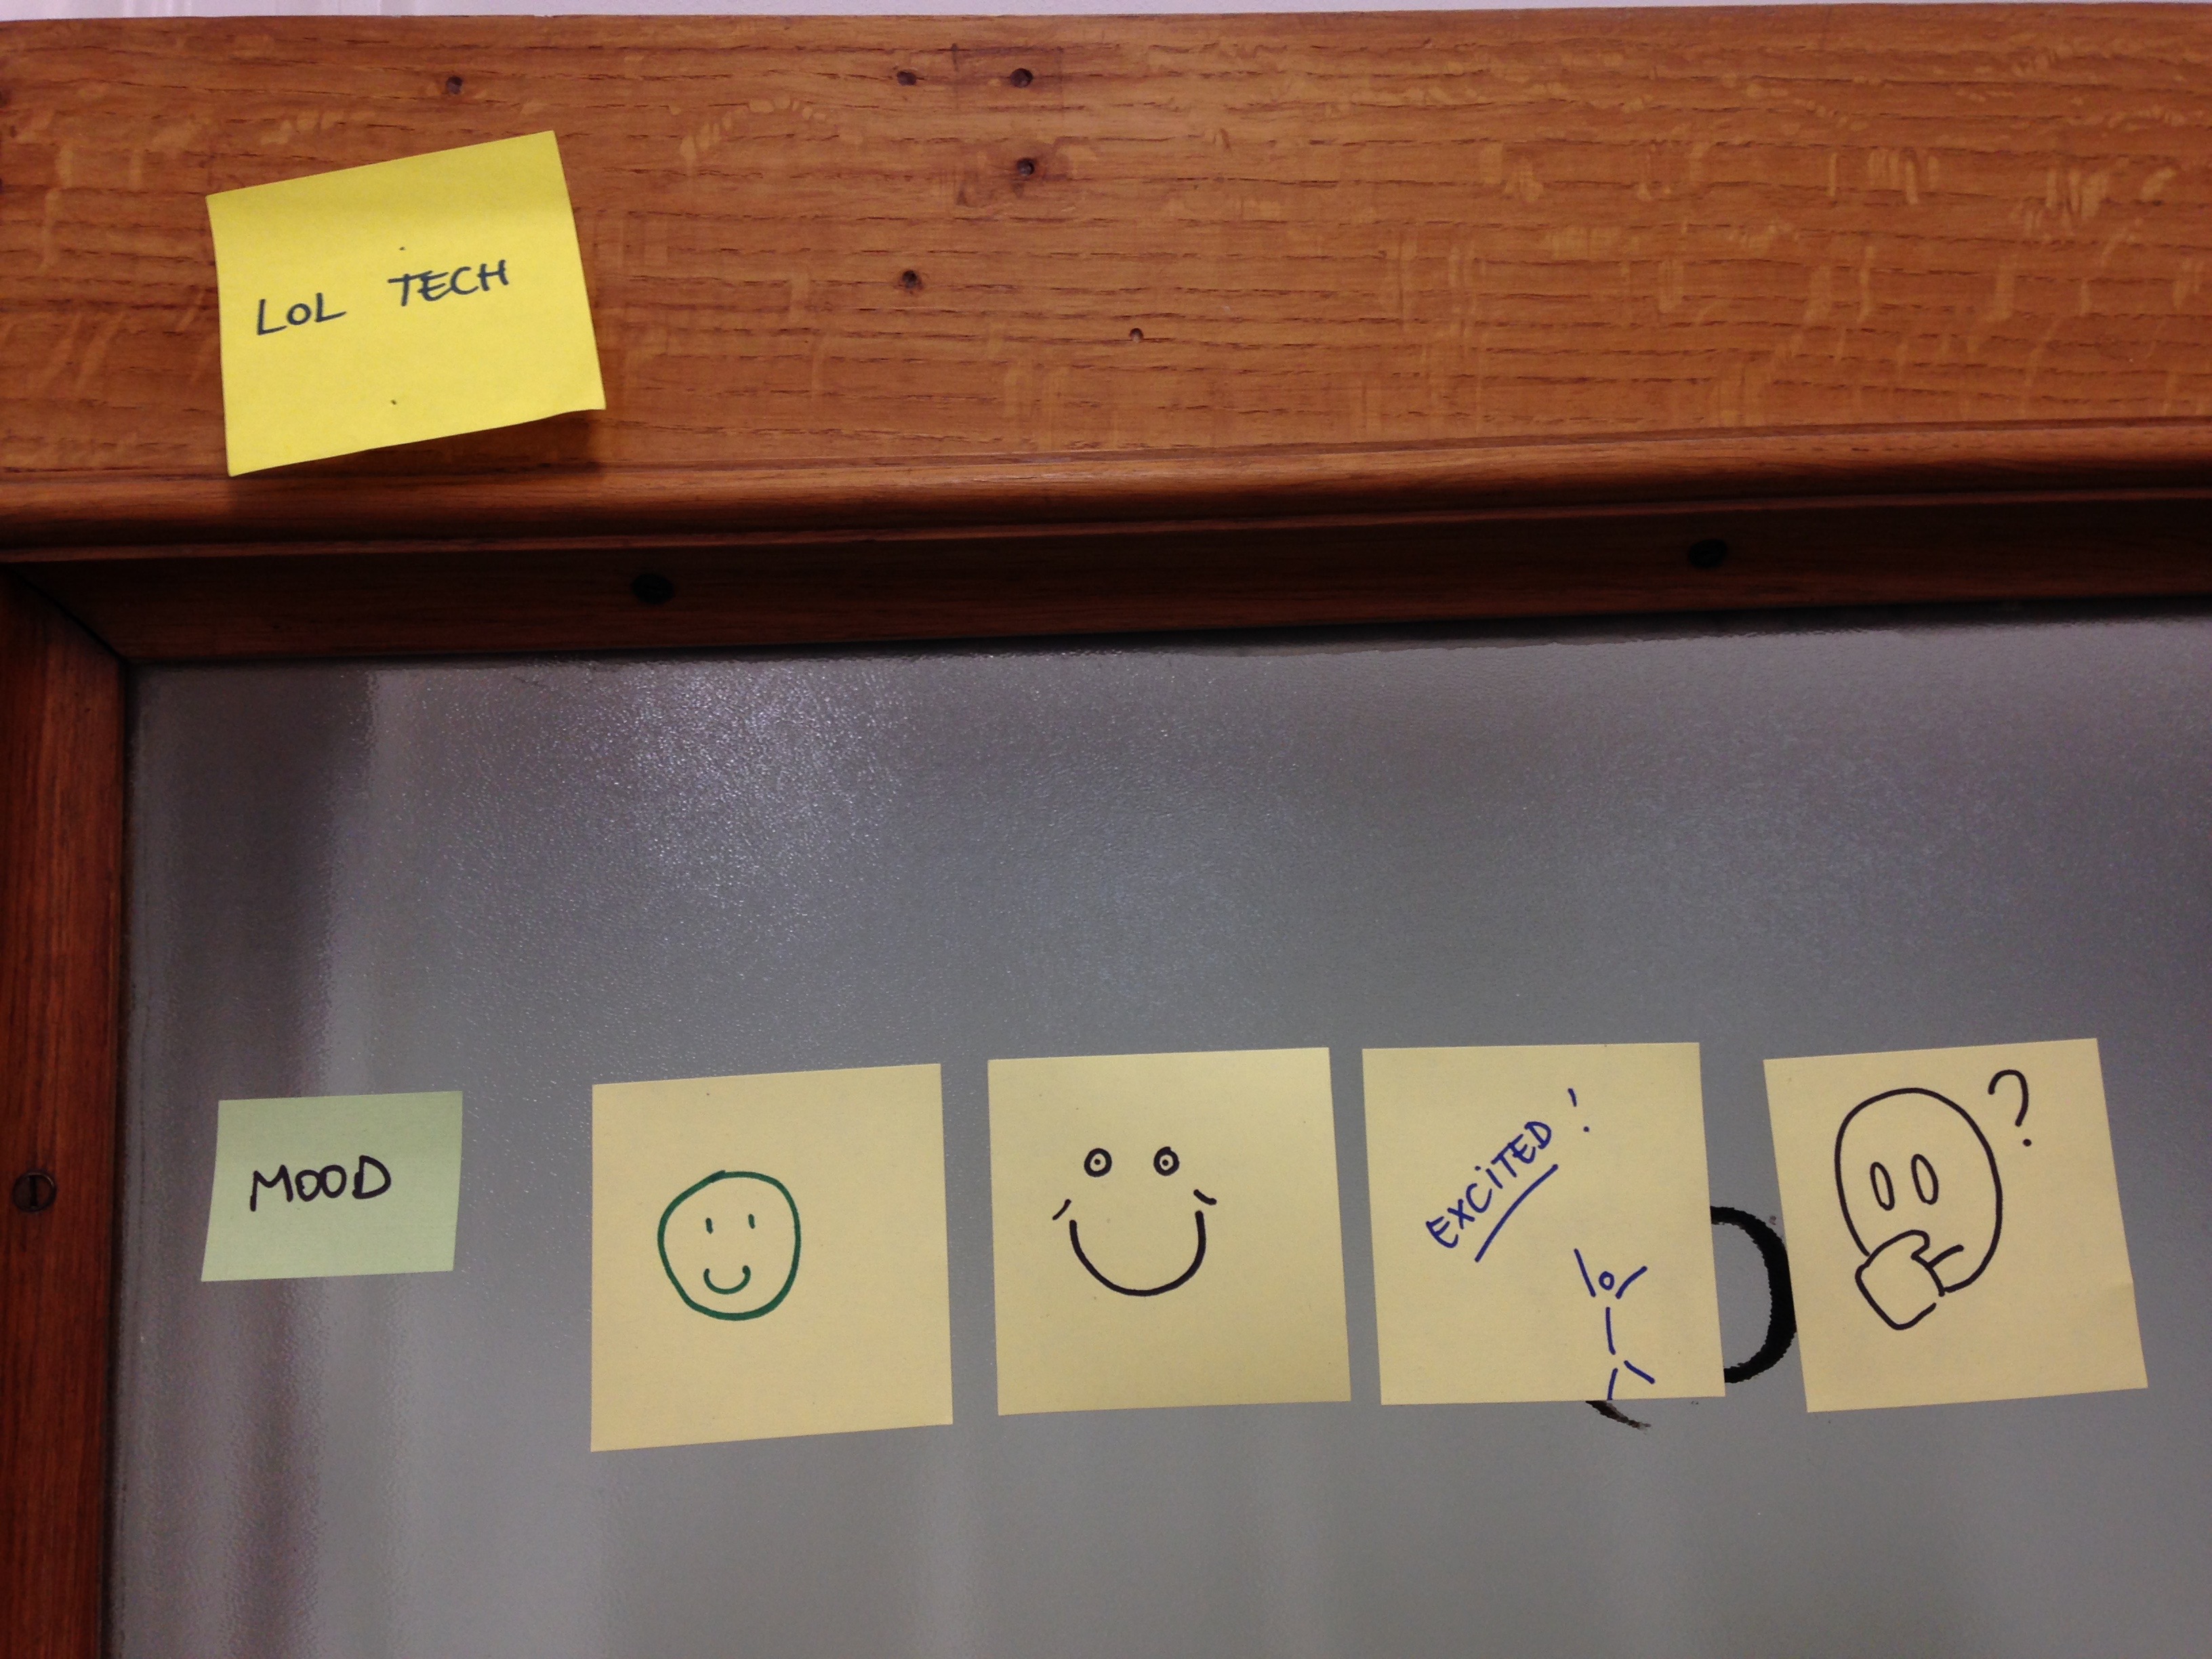 LOL TECH
MOOD
EXCITED!
?